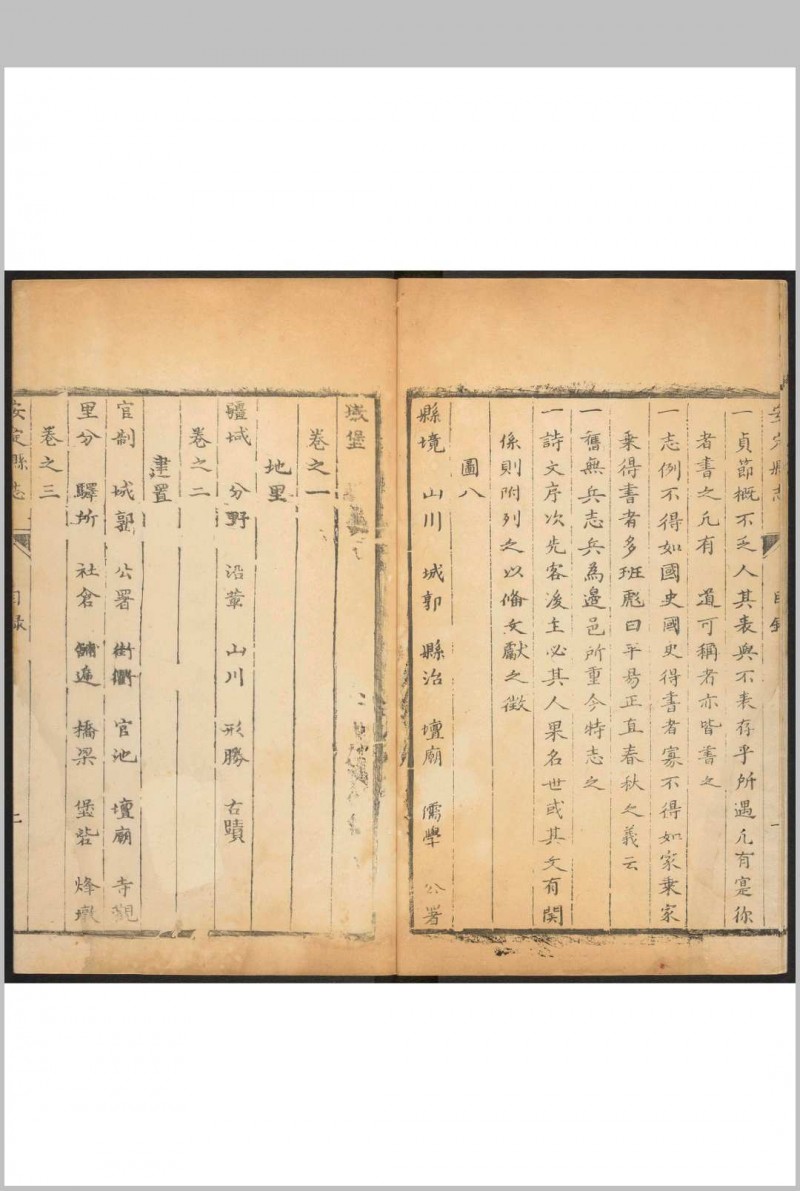 安定縣志 目錄 一
一貞節概不乏人其表與不表存乎所遇凡有寔行
者書之凡有 道可稱者亦皆書之
一志例不得如國史國史得書者寡不得如家乗家
乗得書者多班彪曰平易正直春秋之義云
一舊無兵志兵為邊邑所重今特志之
一詩文序次先客後主必其人果名世或其文有関
係則附列之以俻文獻之徴
圖八
縣境 山川 城郭 縣治 壇廟 儒學 公署
城堡
卷之一
地里
疆域 分野 沿革 山川 形勝 古蹟
卷之二
建置
官制 城郭 公署 街衢 官池 壇廟 寺觀
里分 驛所 社倉 鋪逓 橋梁 堡砦 烽墩
卷之三
安定縣志 目錄 二